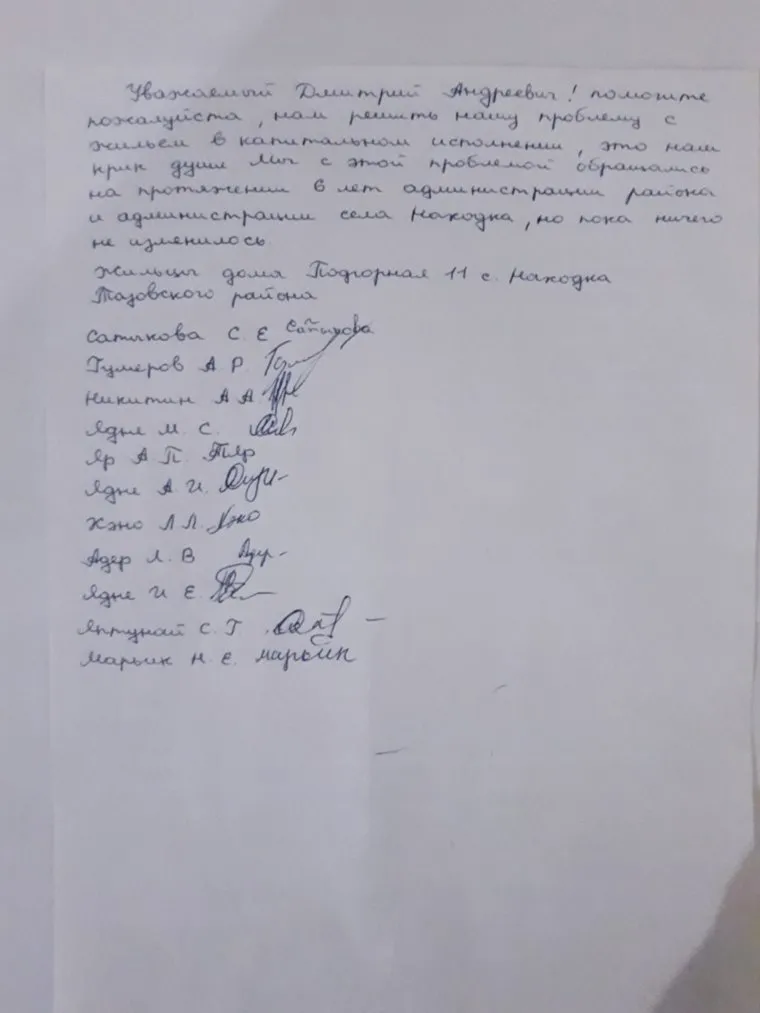 Уважаемый Дмитрий Андреевич! помогите
пожалуйста, нам решить нашу проблему с
жильем в капитальном исполнении, это наш
крик души Мы с этой проблемой обращались
на протяжении 6 лет администрации района
и администрации села Находка, но пока ничего
не изменилось.
Жильцы дома Подгорная 11 с. Находка
Тазовского района
Сатыкова С. Е Сатыкова
Тумеров А. Р.
Никитин А А.
Ядне М. С.
Яр А П. Яр
Ядне А. И.
Хэно Л Л. Хэно
Адер Л. В Адер
Ядне И Е.
Яптунай С. Т
Марьик Н. Е. Марьик